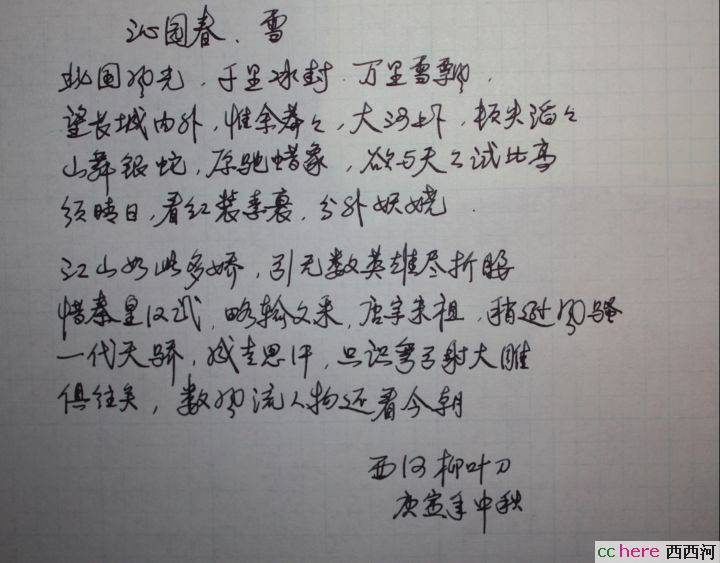 沁园春.雪
北国风光,千里冰封.万里雪飘.
望长城内外,惟余莽々,大河上下,顿失滔々
山舞银蛇,原驰蜡象,欲与天公试比高
须晴日,看红装素裹,分外妖娆.
江山如此多娇,引无数英雄尽折腰
惜秦皇汉武,略输文采,唐宗宋祖,稍逊风骚
一代天骄,成吉思汗,只识弯弓射大雕
俱往矣,数风流人物还看今朝
西河柳叶刀
庚寅年中秋
cchere 西西河